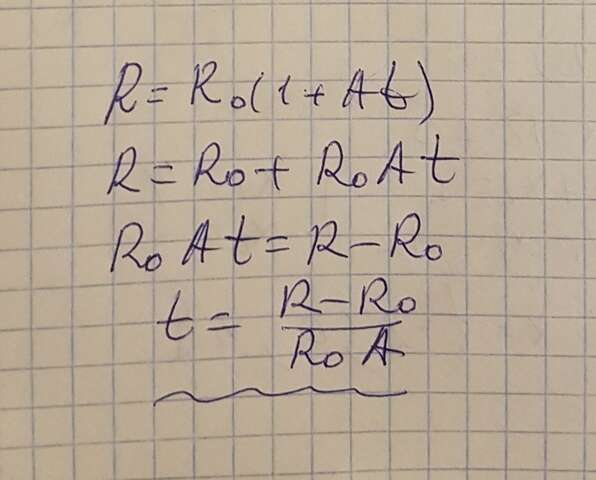 R = R₀(1 + At)
R = R₀ + R₀ A t
R₀ A t = R − R₀
t = (R − R₀) / (R₀ A)